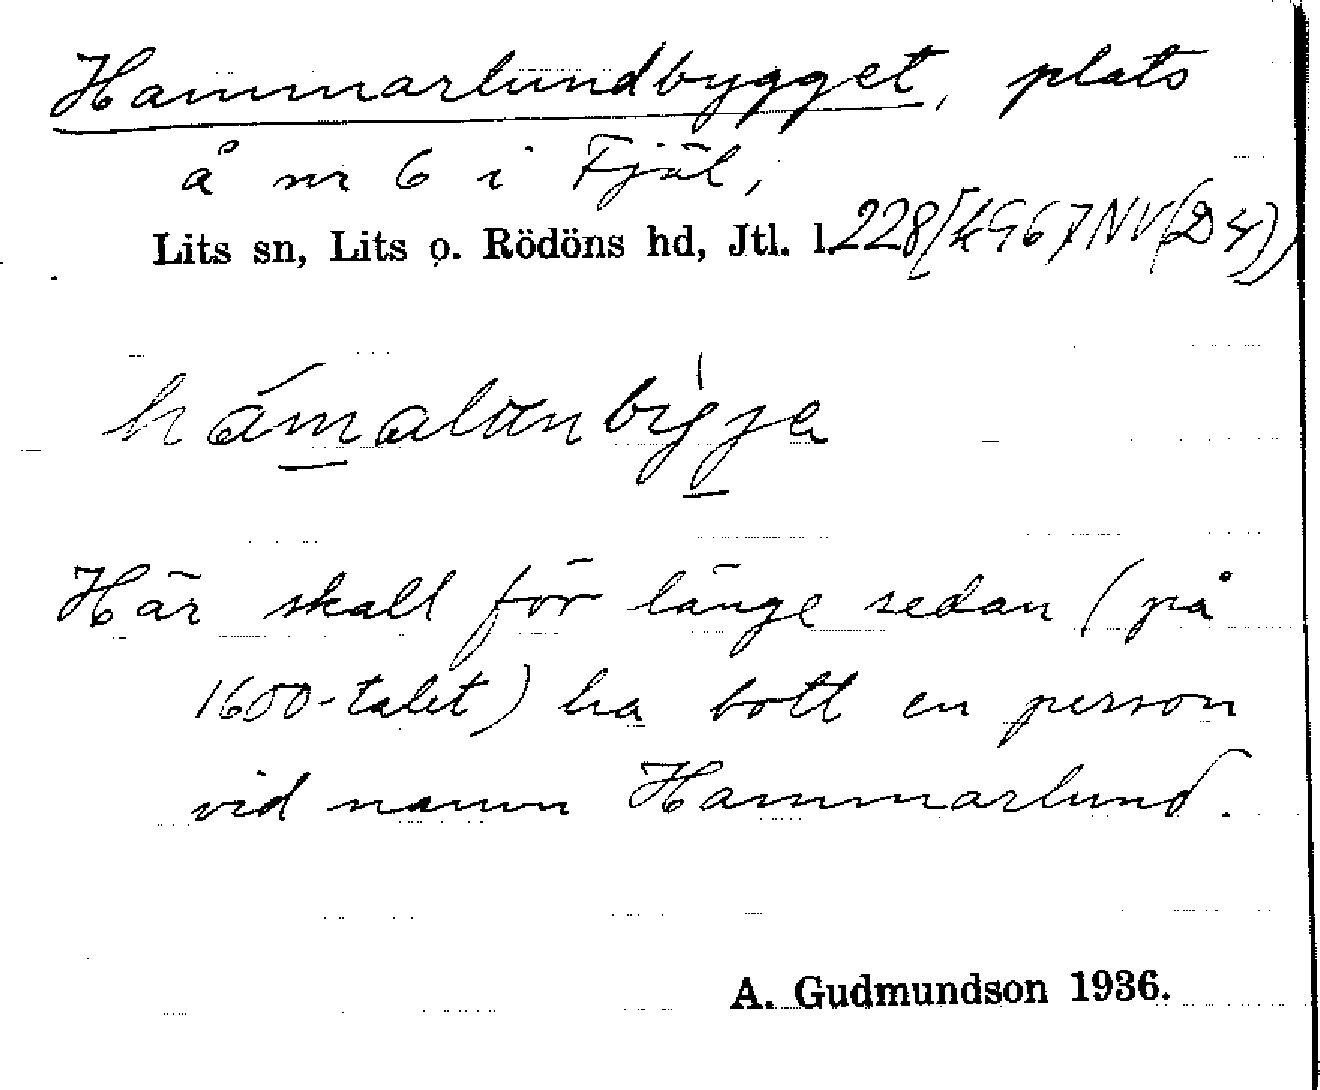 Hammarlundbygget, plats
å nr 6 i Fjäl,
Lits sn, Lits o. Rödöns hd, Jtl. l. 228 [4967NV(D4)]
Här skall för länge sedan (på
1600-talet) ha bott en person
vid namn Hammarlund.
A. Gudmundson 1936.